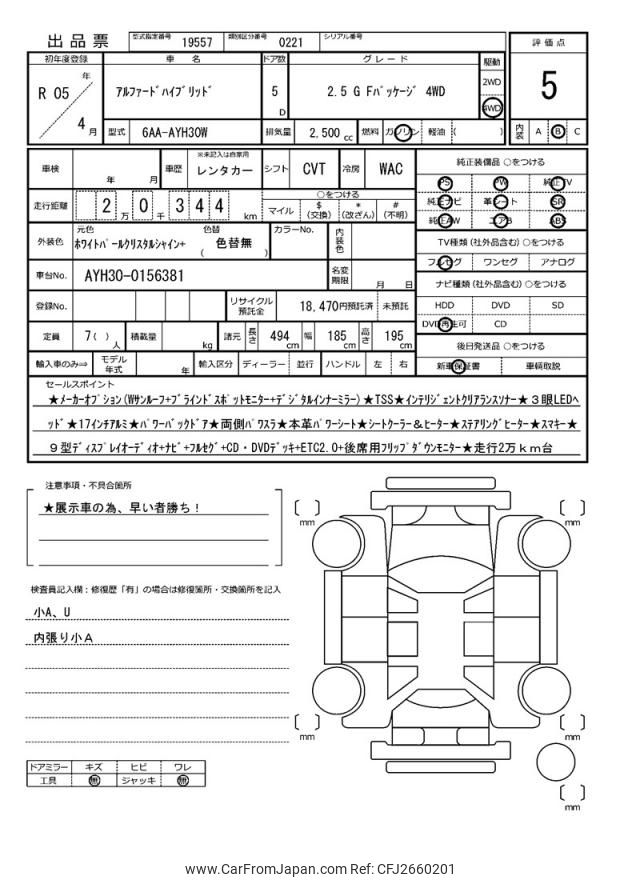 出品票 型式指定番号 19557 類別区分番号 0221 シリアル番号
評価点
5
初年度登録 車名 ドア数 グレード 駆動
R 05 年 4 月
アルファードハイブリッド 5 D 2.5 G Fパッケージ 4WD
2WD
4WD
型式 6AA-AYH30W 排気量 2,500 cc 燃料 ガソリン 軽油 ( ) 内装 A B C
車検 年 月 車歴 ※未記入は自家用 レンタカー シフト CVT 冷房 WAC
走行距離 2 万 0 千 3 4 4 km
○をつける
マイル $(交換) *(改ざん) #(不明)
外装色 元色 ホワイトパールクリスタルシャイン+ 色替 ( 色替無 ) カラーNo. 内装色
車台No. AYH30-0156381 名変期限 月 日
登録No. リサイクル預託金 18,470円預託済 未預託
定員 7( ) 人 積載量 kg 諸元 長さ 494 cm 幅 185 cm 高さ 195 cm
輸入車のみ⇒ モデル年式 年 輸入区分 ディーラー 並行 ハンドル 左 右
純正装備品 ○をつける
PS PW 純正TV
純正ナビ 革シート SR
純正AW エアB ABS
TV種類(社外品含む)○をつける
フルセグ ワンセグ アナログ
ナビ種類(社外品含む)○をつける
HDD DVD SD
DVD再生可 CD
後日発送品 ○をつける
新車保証書 車輌取説
セールスポイント
★メーカーオプション(Wサンルーフ+ブラインドスポットモニター+デジタルインナーミラー)★TSS★インテリジェントクリアランスソナー★3眼LEDヘ
ッド★17インチアルミ★パワーバックドア★両側パワスラ★本革パワーシート★シートクーラー&ヒーター★ステアリングヒーター★スマキー★
9型ディスプレイオーディオ+ナビ+フルセグ+CD・DVDデッキ+ETC2.0+後席用フリップダウンモニター★走行2万km台
注意事項・不具合箇所
★展示車の為、早い者勝ち!
検査員記入欄:修復歴「有」の場合は修復箇所・交換箇所を記入
小A、U
内張り小A
ドアミラー キズ ヒビ ワレ
工具 無 ジャッキ 無
mm
mm
mm
mm
mm
www.CarFromJapan.com Ref: CFJ2660201